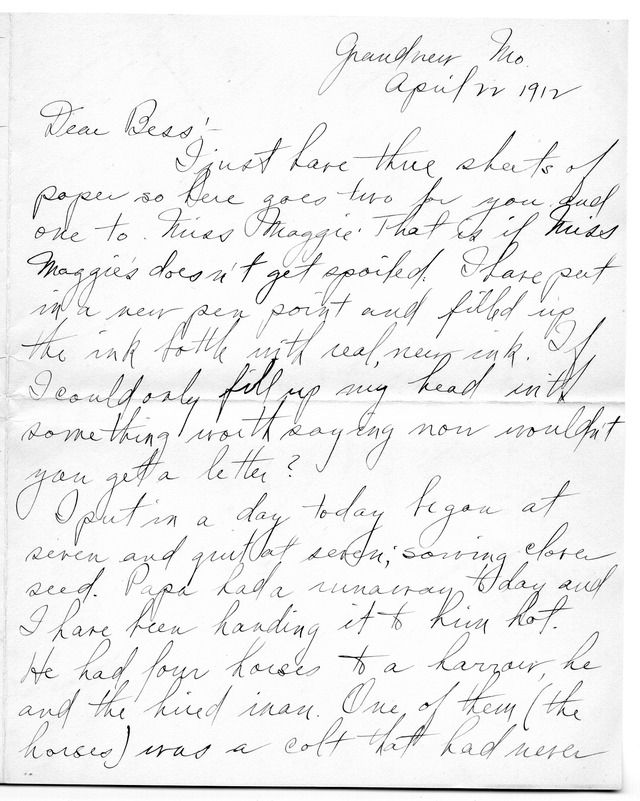 Grandview Mo.
April 22 1912
Dear Bess:-
I just have three sheets of
paper so here goes two for you and
one to Miss Maggie. That is if Miss
Maggie's doesn't get spoiled. I have put
in a new pen point and filled up
the ink bottle with real, new ink. If
I could only fill up my head with
something worth saying now wouldn't
you get a letter?
I put in a day today began at
seven and quit at seven; sowing clover
seed. Papa had a runaway today and
I have been handing it to him hot.
He had four horses to a harrow, he
and the hired man. One of them (the
horses) was a colt that had never